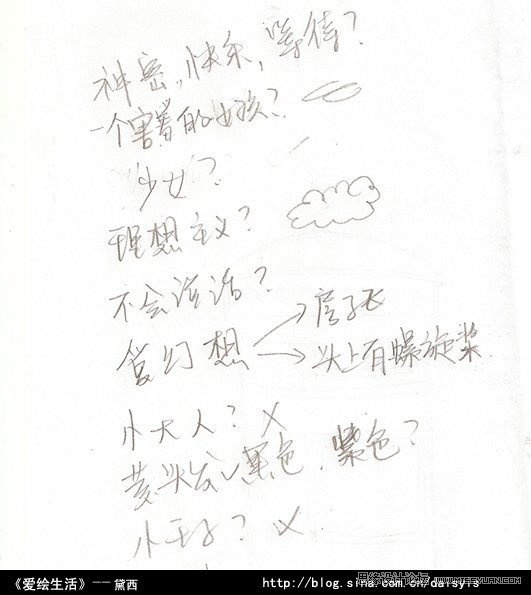 神密,快乐,等待?
一个害羞的女孩?
少女?
理想主义?
不会说话?
爱幻想 → 房子飞
→ 头上有螺旋桨
小大人? X
头发√黑色、紫色?
小王子? X
思缘设计论坛 WWW.MISSYUAN.COM
《爱绘生活》—— 黛西 http://blog.sina.com.cn/daisyis